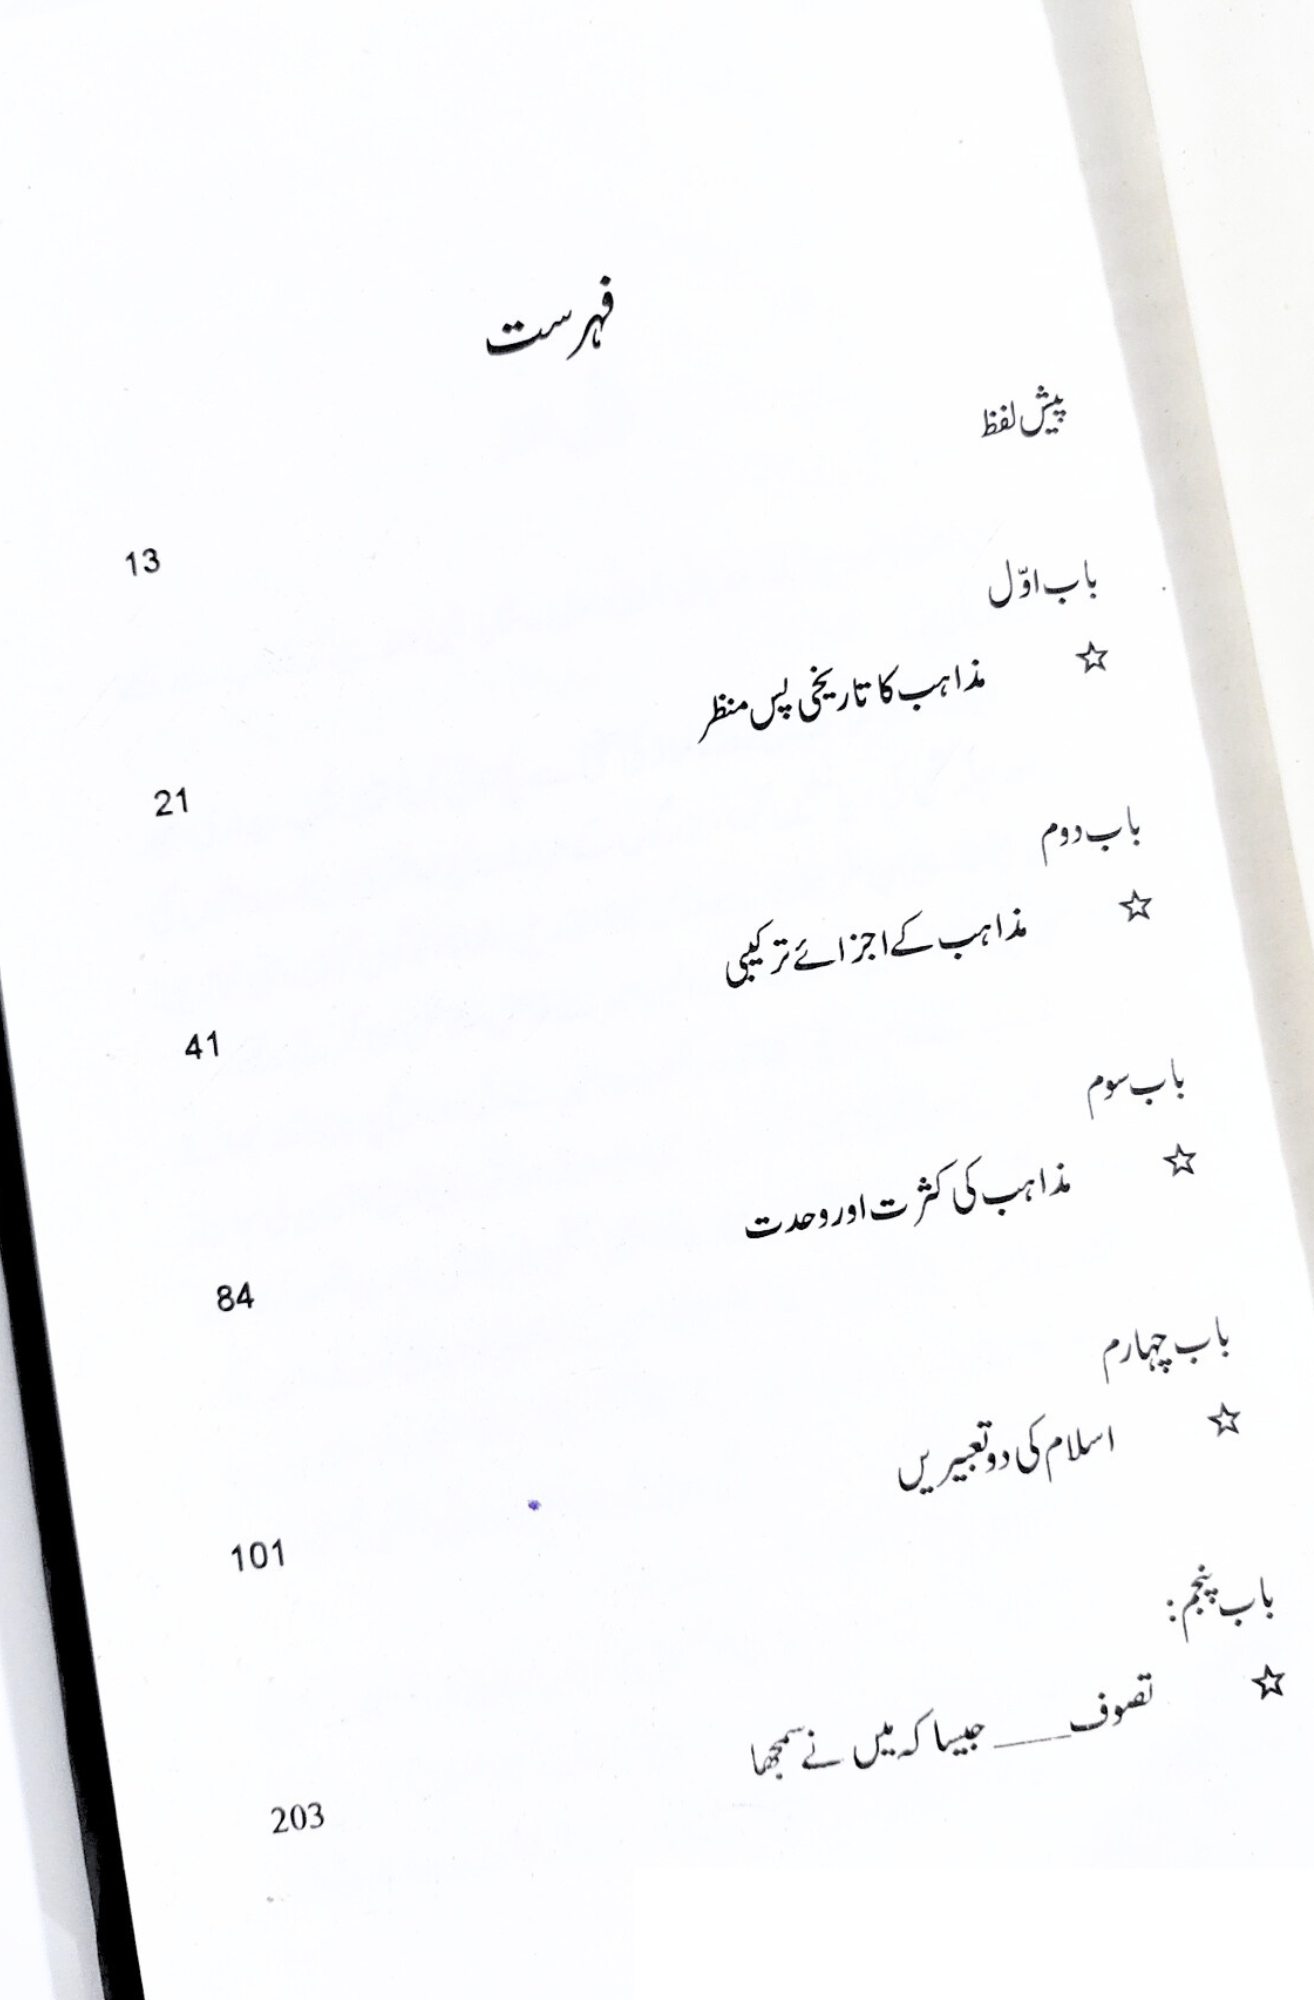 فہرست
پیش لفظ
13
باب اوّل
☆ مذاہب کا تاریخی پس منظر
21
باب دوم
☆ مذاہب کے اجزائے ترکیبی
41
باب سوم
☆ مذاہب کی کثرت اور وحدت
84
باب چہارم
☆ اسلام کی دو تعبیریں
101
باب پنجم:
☆ تصوف____ جیسا کہ میں نے سمجھا
203